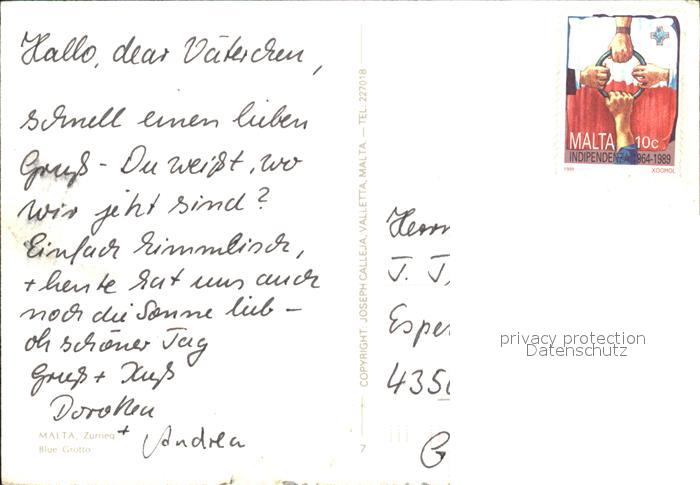 Hallo, dear Väterchen,
schnell einen lieben
Gruß - Du weißt, wo
wir jetzt sind?
Einfach himmlisch,
+ heute hat uns auch
noch die Sonne lieb -
oh schöner Tag
Gruß + Kuß
Dorothea
+ Andrea
MALTA, Zurrieq
Blue Grotto
COPYRIGHT: JOSEPH CALLEJA, VALLETTA, MALTA. — TEL. 227018
7
MALTA 10c
INDIPENDENZA 1964-1989
1989 XOOMOL
Herrn
J. J.
Espe
435
G
privacy protection
Datenschutz